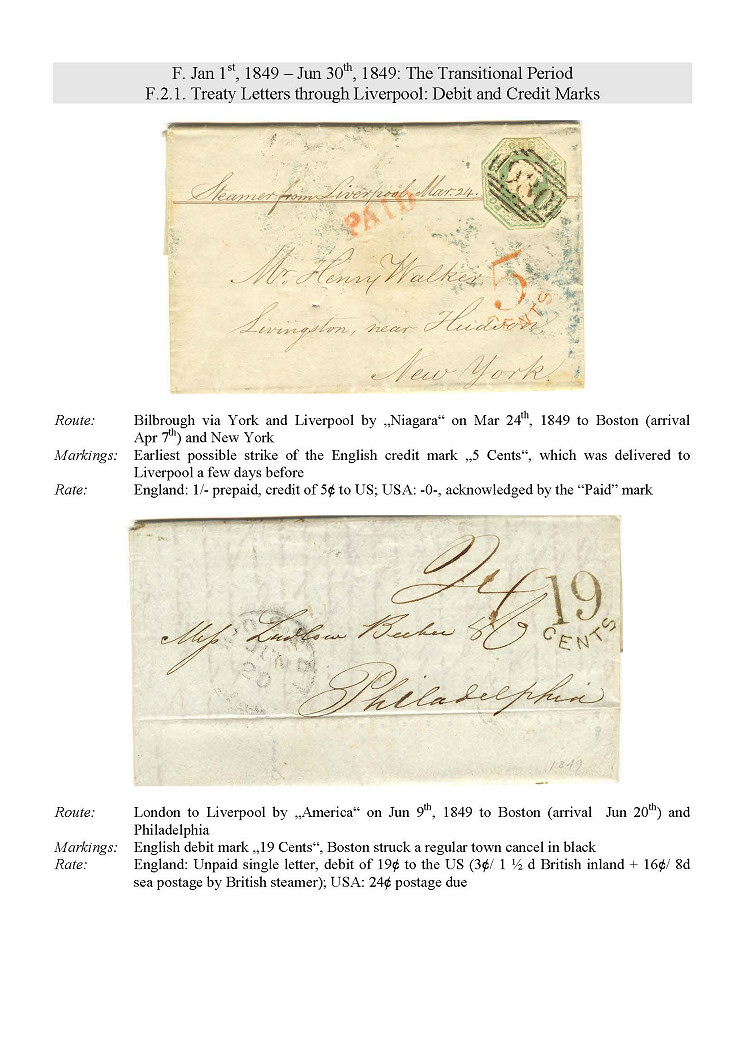 F. Jan 1st, 1849 – Jun 30th, 1849: The Transitional Period
F.2.1. Treaty Letters through Liverpool: Debit and Credit Marks
ONE
Steamer from Liverpool, Mar. 24.
PAID
Mr. Henry Walker
5
CENTS
Livingston, near Hudson,
New York.
Route: Bilbrough via York and Liverpool by „Niagara“ on Mar 24th, 1849 to Boston (arrival
Apr 7th) and New York
Markings: Earliest possible strike of the English credit mark „5 Cents“, which was delivered to
Liverpool a few days before
Rate: England: 1/- prepaid, credit of 5¢ to US; USA: -0-, acknowledged by the “Paid” mark
24
19
CENTS
Mess Ludlow Beebee & Co
Philadelphia
1849
Route: London to Liverpool by „America“ on Jun 9th, 1849 to Boston (arrival Jun 20th) and
Philadelphia
Markings: English debit mark „19 Cents“, Boston struck a regular town cancel in black
Rate: England: Unpaid single letter, debit of 19¢ to the US (3¢/ 1 ½ d British inland + 16¢/ 8d
sea postage by British steamer); USA: 24¢ postage due